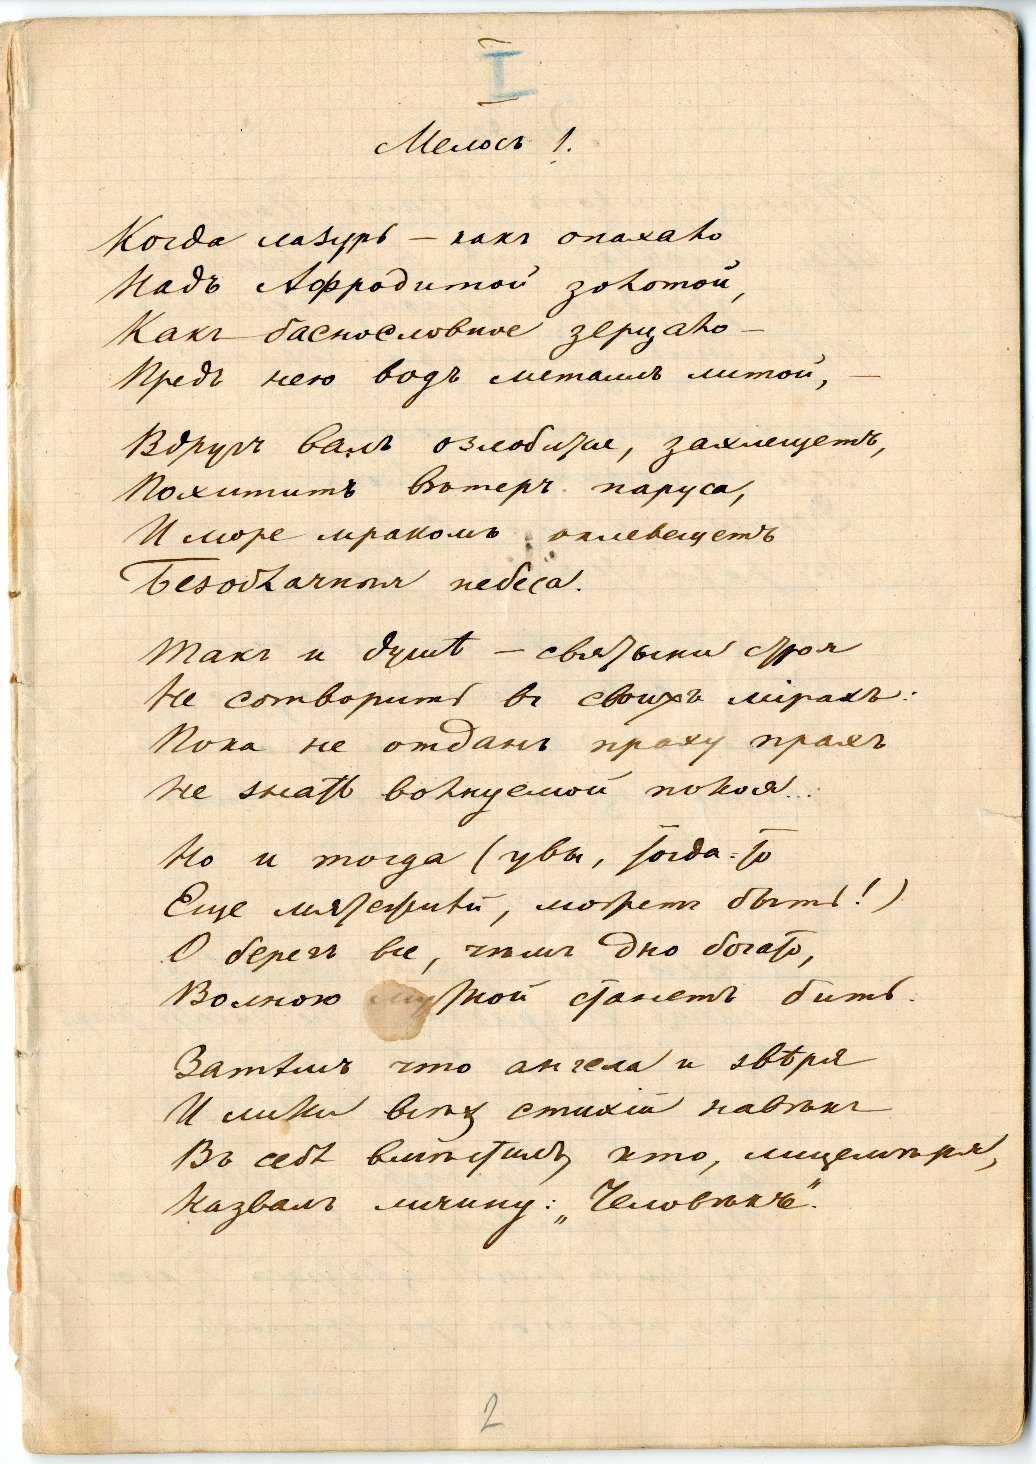 I
Мелосъ 1.
Когда лазурь – какъ опахало
Надъ Афродитой золотой,
Какъ баснословное зерцало –
Предъ нею водъ металлъ литой, –
Вдругъ валъ озлобится, захлещетъ,
Похититъ вѣтеръ паруса,
И море мракомъ оклевещетъ
Безоблачныя небеса.
Такъ и душѣ – святыни строя
Не сотворить въ своихъ мірахъ:
Пока не отданъ праху прахъ
Не знать волнуемой покоя...
Но и тогда (увы, тогда-то
Еще мятежнѣй, можетъ быть!)
О берегъ все, чѣмъ дно богато,
Волною мутной станетъ бить.
Затѣмъ что ангела и звѣря
И лики всѣхъ стихій навѣкъ
Въ себѣ вмѣстилъ, кто, лицемѣря,
Назвалъ личину: „Человѣкъ".
2